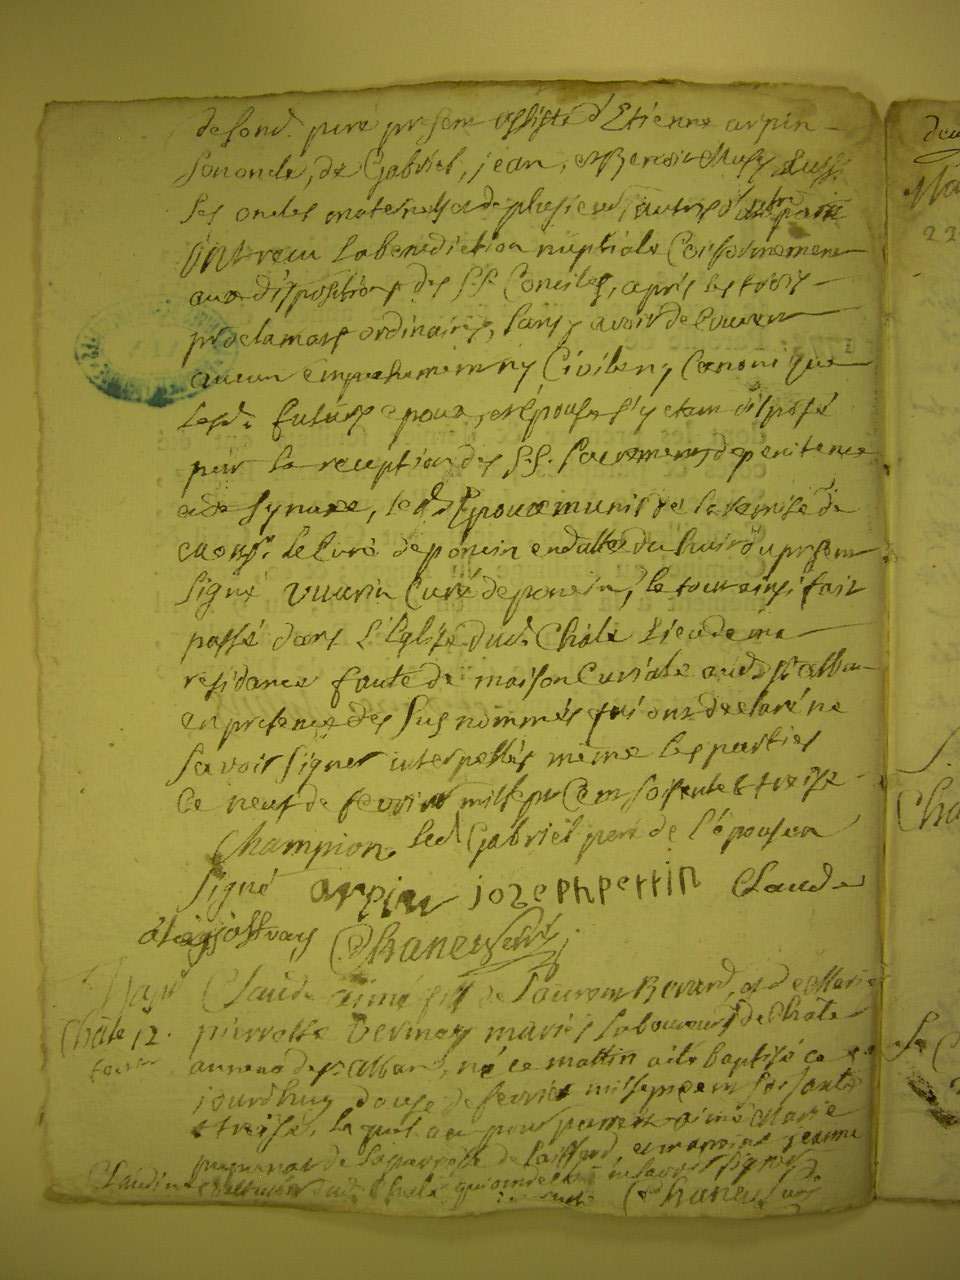 defend. père présent assisté d'Etienne arpin
son oncle, de Gabriel, jean, et Benoit
ses oncles maternels et de plusieurs autres d'autre part
ont recu la benediction nuptiale Conformement
aux dispositions des S.S. Conciles, apres les trois
proclamats ordinaires, sans y avoir decouvert
aucun empechement ny Civile ny Canonique
lesd. futurs epoux, et Epouse s'y etant disposé
par la reception des S.S. Sacrements de penitence
et de Synaxe, led. Epoux muni de la remise de
Mons.r le Curé de poncin en datte du huit du present
signé vuarin Curé de poncin, le tout ainsi fait
passé dans L'Eglise dud. Châle Lieu de ma
residance faute de maison Curiale aud. St alban
en presence des sus nommés qui ont declaré ne
scavoir signer interpellés même les parties
Ce neuf de fevrier mil sept Cent soisente & treise
Champion, led Gabriel pere de l'epouse a
signé arpin jozeph perrin Claude
Chaneu Curé
Châle 12.
fevrier
Claude aimé fils de Laurent Berard, et de Marie
pierrette vernay mariés laboureurs de Châle
annexe de St alban, né ce mattin a été baptisé ce
jourdhuy douse de fevrier mil sept cent soisante
& treise, le parrain aimé Marie
de la parroisse de et marraine jeanne
Claudine dud. Châle qui ont scavoir signer
Chaneu Curé